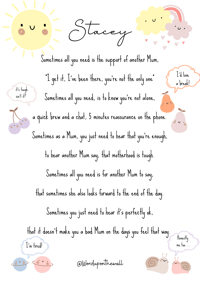 Stacey
Sometimes all you need is the support of another Mum,
"I get it, I've been there, you're not the only one"
I'd love a break!
it's tough isn't it?
Sometimes all you need, is to know you're not alone,
a quick brew and a chat, 5 minutes reassurance on the phone.
Sometimes as a Mum, you just need to hear that you're enough,
to hear another Mum say, that motherhood is tough.
Sometimes all you need is for another Mum to say,
that sometimes she also looks forward to the end of the day.
Sometimes you just need to hear it's perfectly ok,
that it doesn't make you a bad Mum on the days you feel that way.
I'm tired!
Honestly me too...